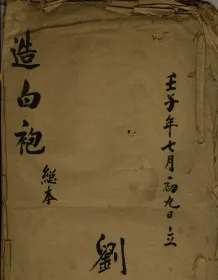 壬子年七月初九日立
劉
造白袍
總本